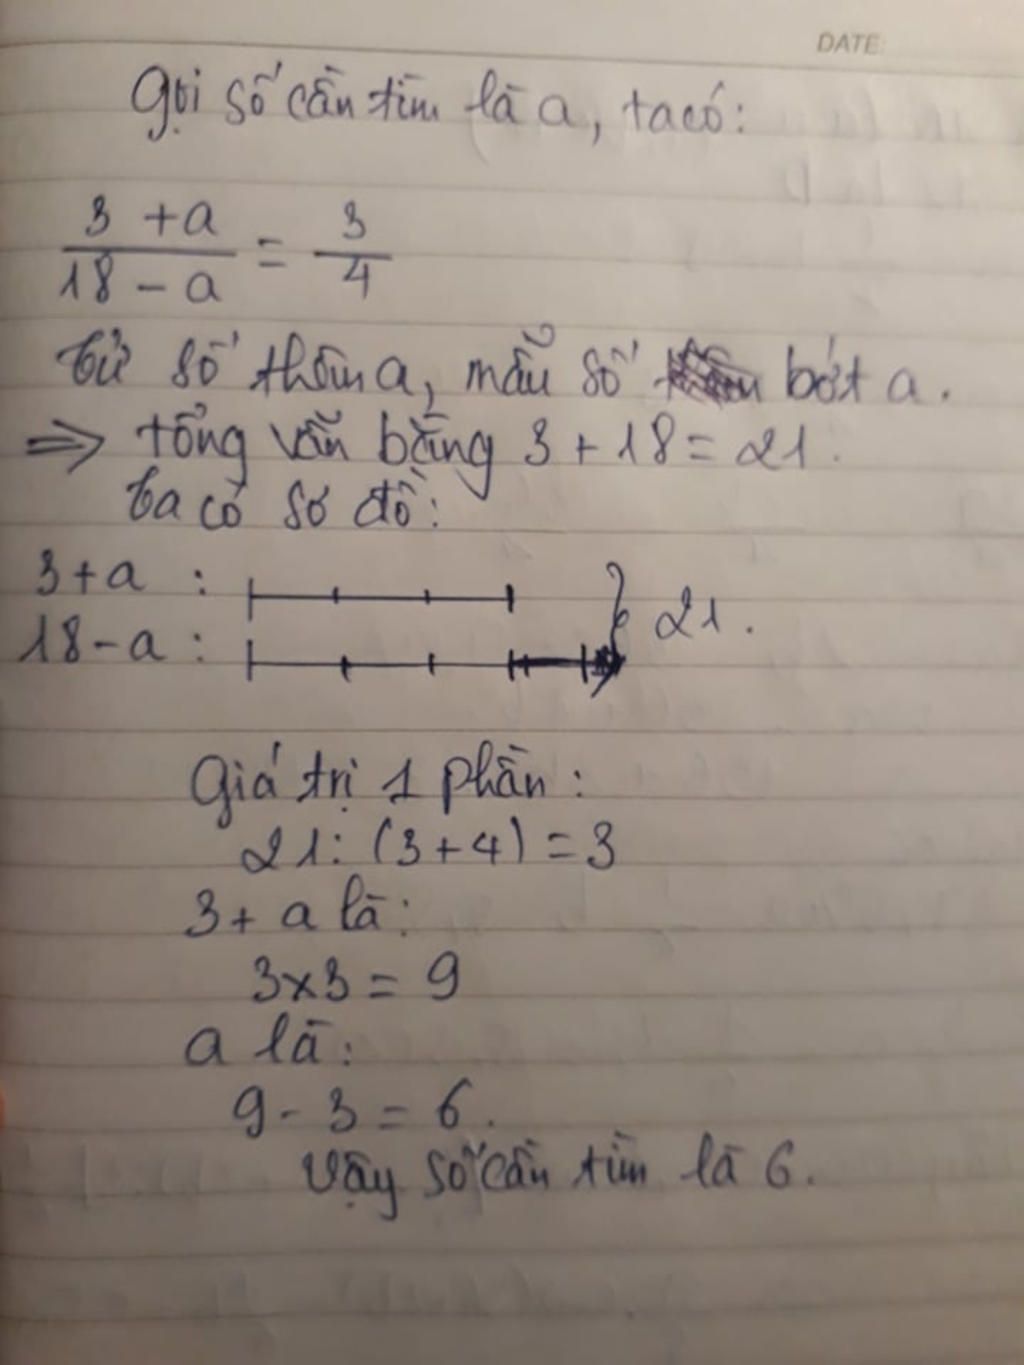 DATE:
Gọi số cần tìm là a, ta có:
3 + a / 18 - a = 3 / 4
Tử số thêm a, mẫu số bớt a.
⇒ tổng vẫn bằng 3 + 18 = 21.
Ta có sơ đồ:
3 + a :
18 - a : 21.
Giá trị 1 phần :
21 : (3 + 4) = 3
3 + a là :
3 x 3 = 9
a là :
9 - 3 = 6.
Vậy số cần tìm là 6.